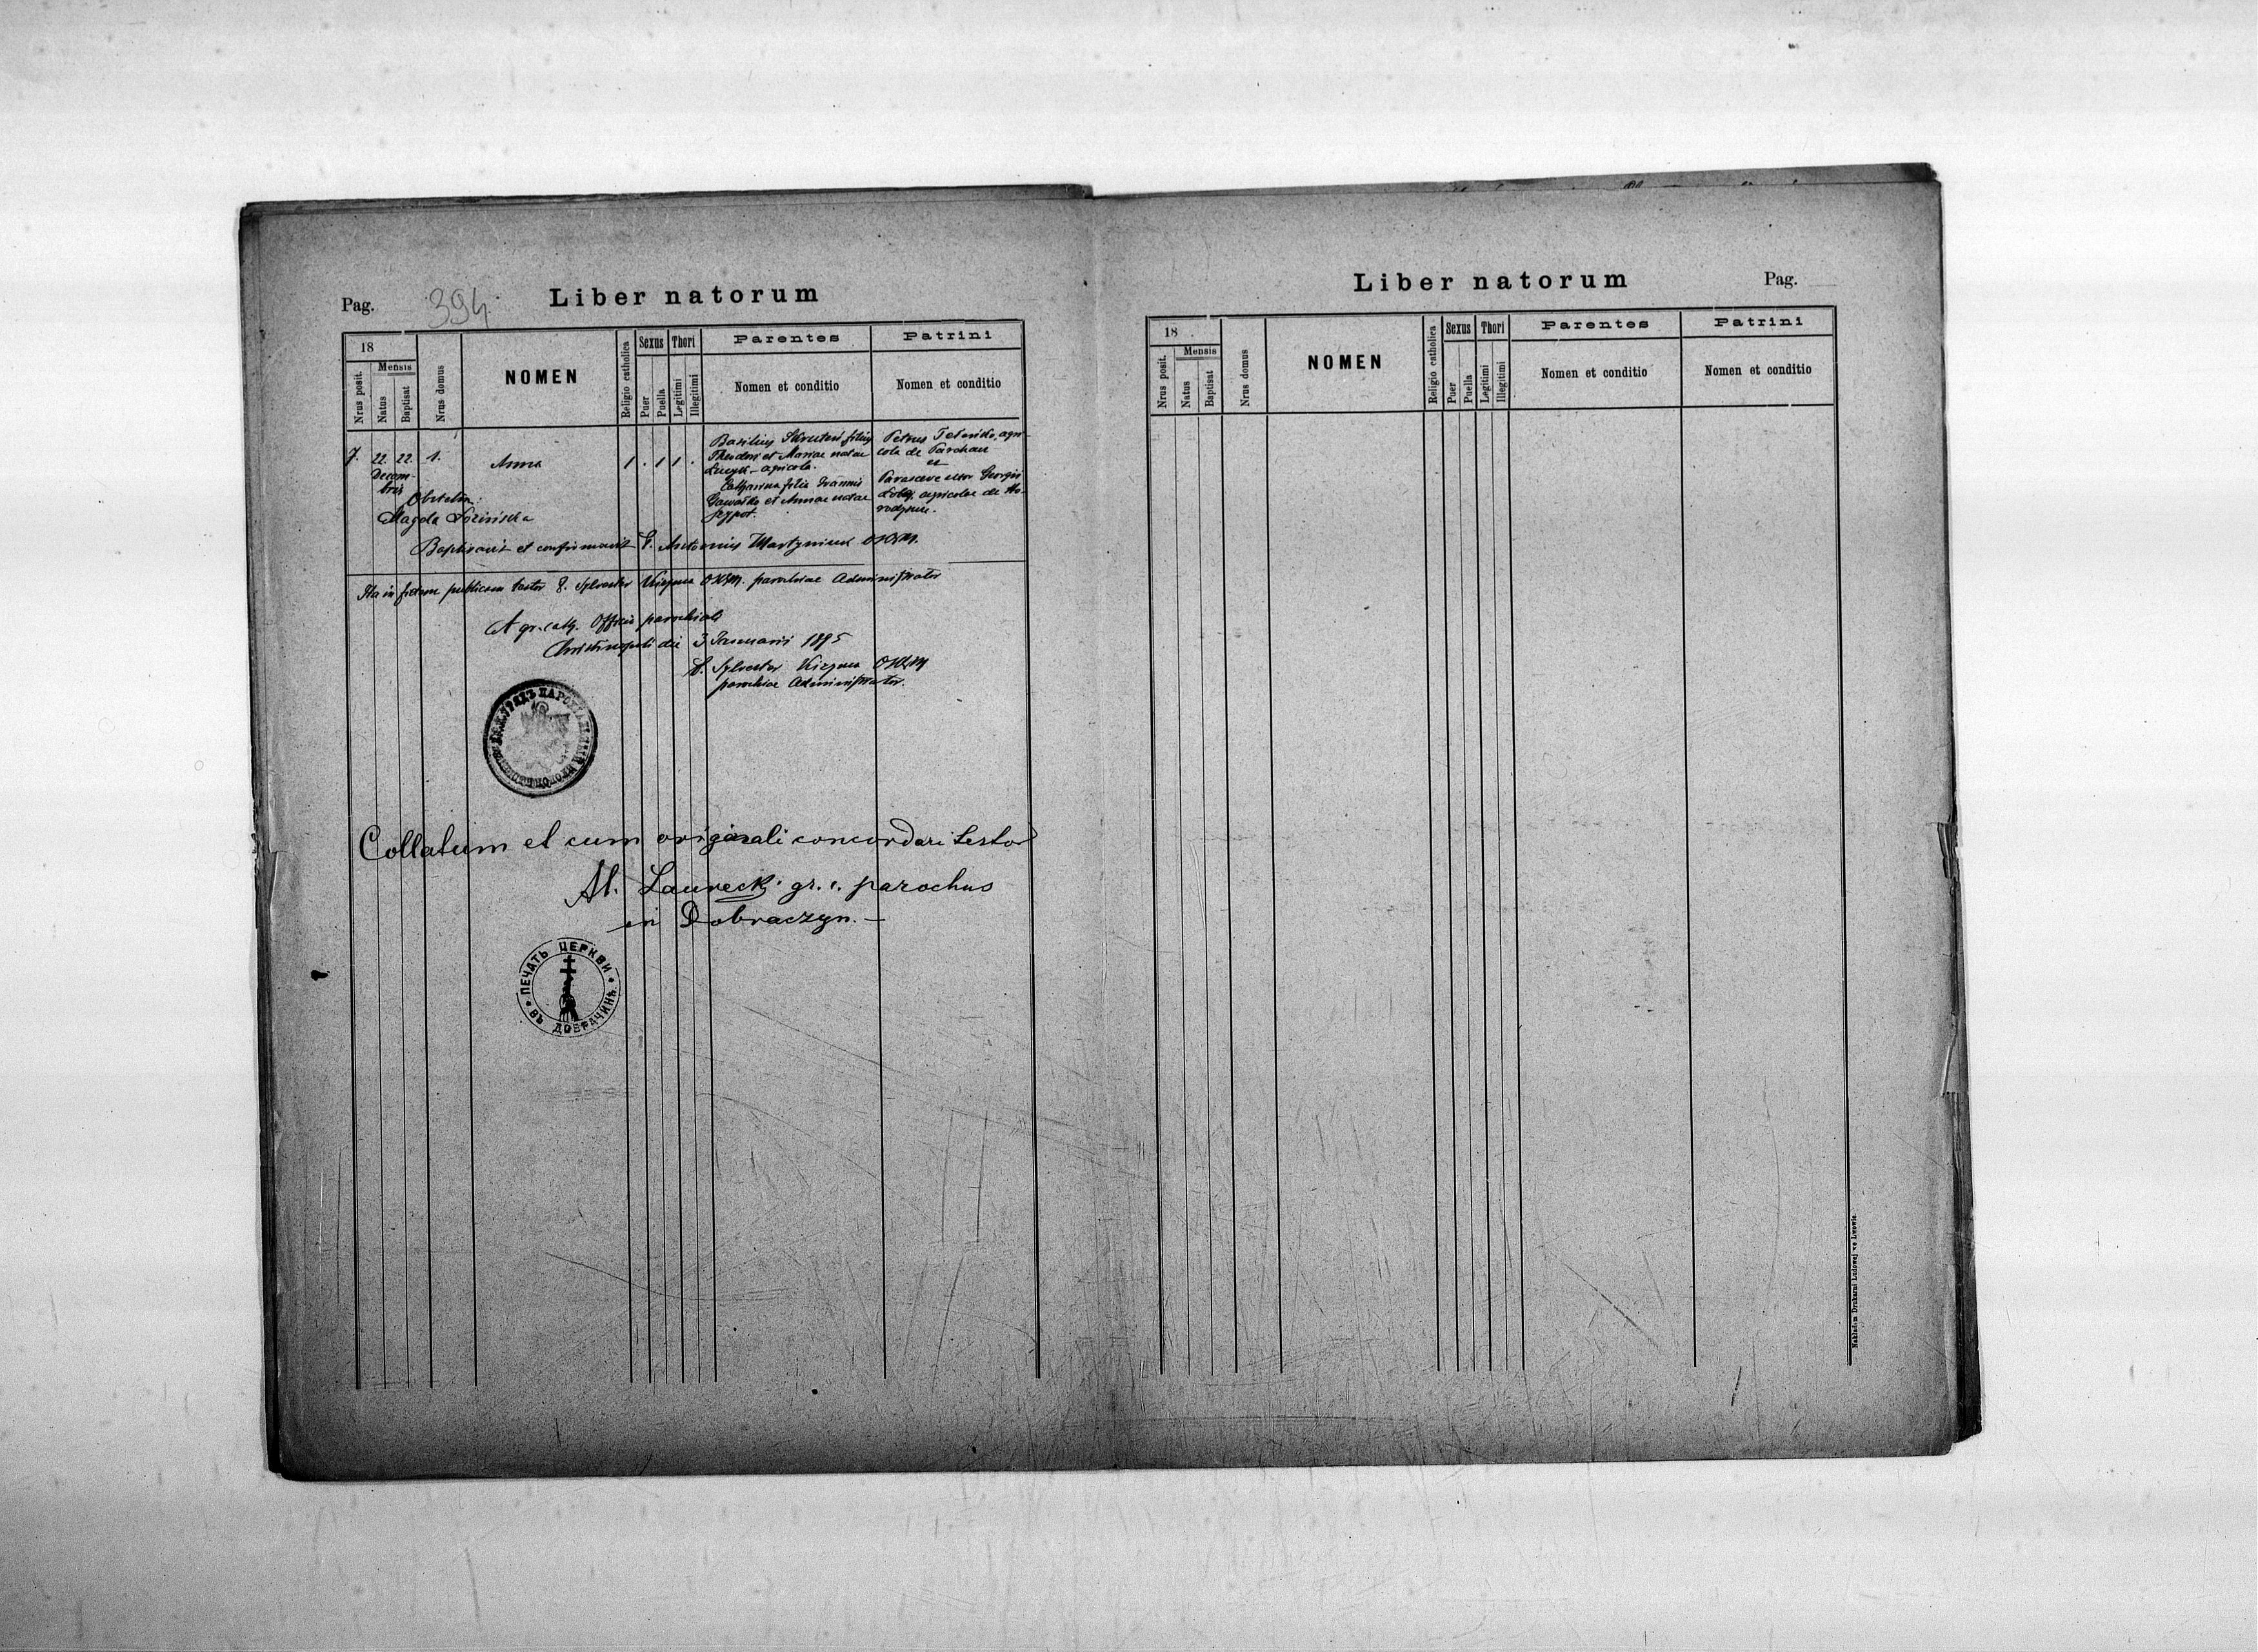 Pag. 394. Liber natorum
18
Nrus posit.
Mensis
Natus
Baptisat
Nrus domus
NOMEN
Religio catholica
Sexus
Puer
Puella
Thori
Legitimi
Illegitimi
Parentes
Nomen et conditio
Patrini
Nomen et conditio
7. 22. 22. 1. Anna 1 . 1 1 .
Decem-
bris
Obstetrix:
Magda
Basilius filius
Theodori et Mariae natae
agricola.
Catharina filia Joannis
et Annae natae
Petrus agri-
cola de Parchacz
et
Parasceve uxor Georgii
agricolae de
Baptisavit et confirmavit P. Antonius Martyniuk OSBM.
Ita in fidem publicam testor P. Sylvester OSBM. parochiae Administrator
A gr. cath. Officio parochiali
die 3 Januarii 1895
P. Sylvester OSBM
parochiae Administrator.
Collatum et cum originali concordari testor
Al. Laurecki gr. c. parochus
in Dobraczyn. —
ПЕЧАТЬ ЦЕРКВИ
ВЪ ДОБРАЧИНЪ
Liber natorum Pag.
18
Nrus posit.
Mensis
Natus
Baptisat
Nrus domus
NOMEN
Religio catholica
Sexus
Puer
Puella
Thori
Legitimi
Illegitimi
Parentes
Nomen et conditio
Patrini
Nomen et conditio
Nakładem Drukarni Ludowej we Lwowie.